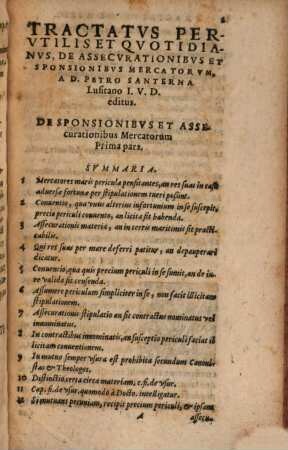 TRACTATVS PER-
VTILIS ET QVOTIDIA-
NVS, DE ASSECVRATIONIBVS ET
SPONSIONIBVS MERCATORVM,
A D. PETRO SANTERNA
Lusitano I. V. D.
editus.
DE SPONSIONIBVS ET ASSE-
curationibus Mercatorum
Prima pars.
SVMMARIA.
1 Mercatores maris pericula pensitantes, an res suas in casu
aduersæ fortunæ per stipulationem tueri possint.
2 Conuentio, qua quis alterius infortunium in se suscipit,
precio periculi conuento, an licita sit habenda.
3 Assecurationis materia, an in tertis maritimis sit practi-
cabilis.
4 Qui res suas per mare deferri patitur, an depauperari
dicatur.
5 Conuentio, qua quis precium periculi in se sumit, an de iu-
re valida sit censenda.
6 Assumere periculum simpliciter in se, non facit illicitam
stipulationem.
7 Assecurationis stipulatio an sit contractus nominatus vel
innominatus.
8 In contractibus innominatis, an susceptio periculi faciat il-
licitam conuentionem.
9 In mutuo semper vsura est prohibita secundum Canonis-
tas & Theologos.
10 Distinctio certa circa materiam, c. fi. de vsur.
11 Cap. fi. de vsur. quomodo à Docto. intelligatur.
12 Si mutuans pecuniam, recipit precium periculi, & ipsam
A assecu-